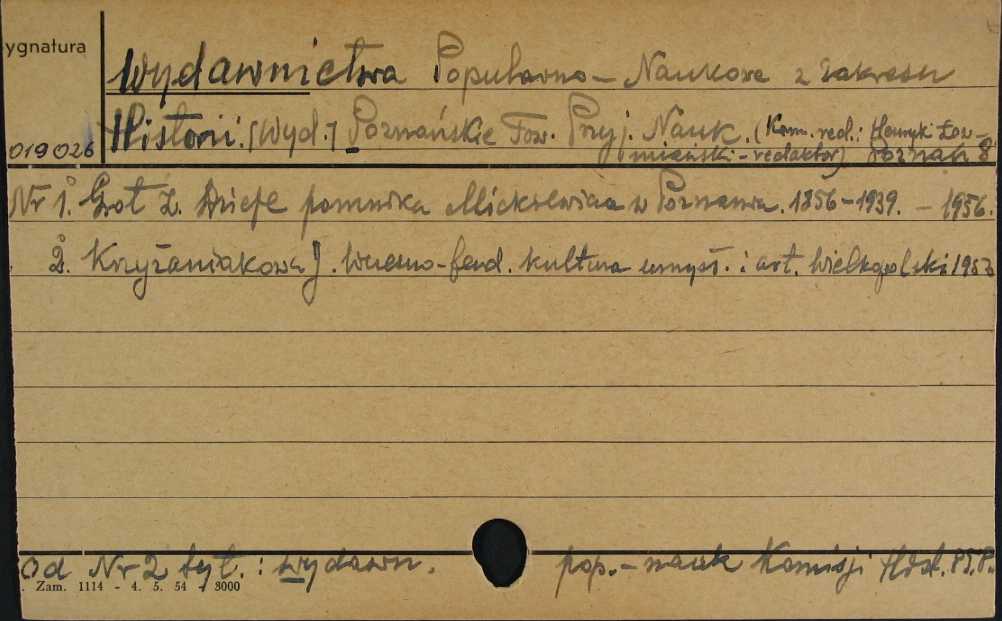 ygnatura
Wydawnictwa Popularno-Naukowe z zakresu
019026 Historii. [Wyd.] Poznańskie Tow. Przyj. Nauk. (Kom. red.: Henryk Łow-
miański - redaktor) Poznań 8°
Nr 1. Grot Z. Dzieje pomnika Mickiewicza w Poznaniu. 1856-1939. - 1956.
2. Krzyżaniakowa J. Wczesno-feud. kultura umysł. i art. Wielkopolski 195
Od Nr 2 tyt.: Wydawn. pop.-nauk Komisji Hist.
. Zam. 1114 - 4. 5. 54 - 8000